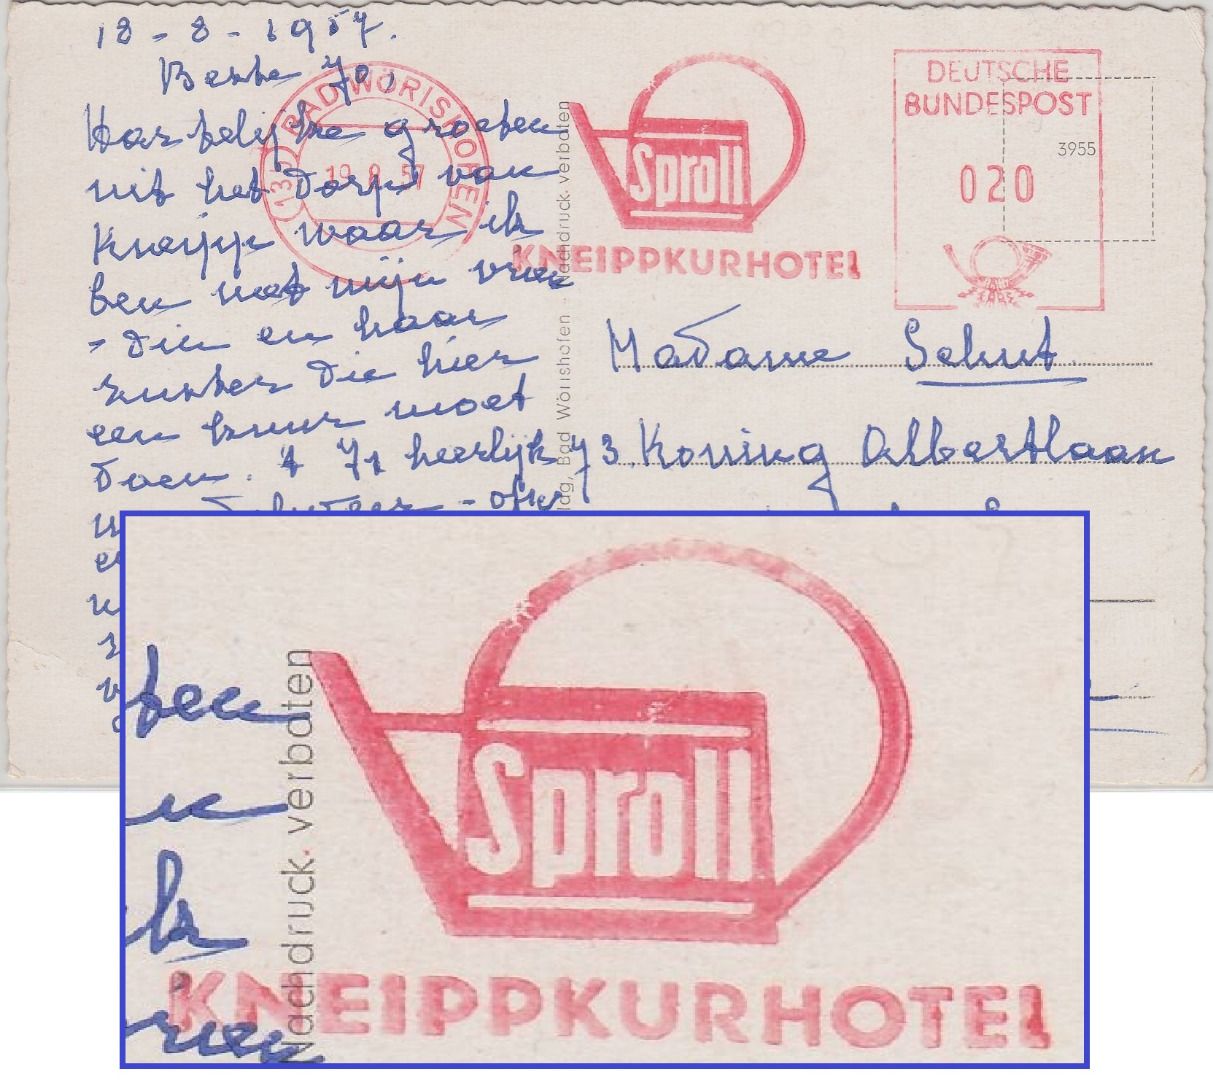 18-8-1957.
Beste Jo,
Hartelijke groeten
uit het dorp van
Kneipp waar ik
ben met mijn vrien
- din en haar
zuster die hier
een kuur moet
doen. 't is heerlijk
BAD WÖRISHOFEN
19.8.57
Sproll
KNEIPPKURHOTEL
DEUTSCHE
BUNDESPOST
3955
020
Bad Wörishofen · Nachdruck verboten
Madame Schut
73. Koning Albertlaan
ten
Sproll
Nachdruck verboten
KNEIPPKURHOTEL